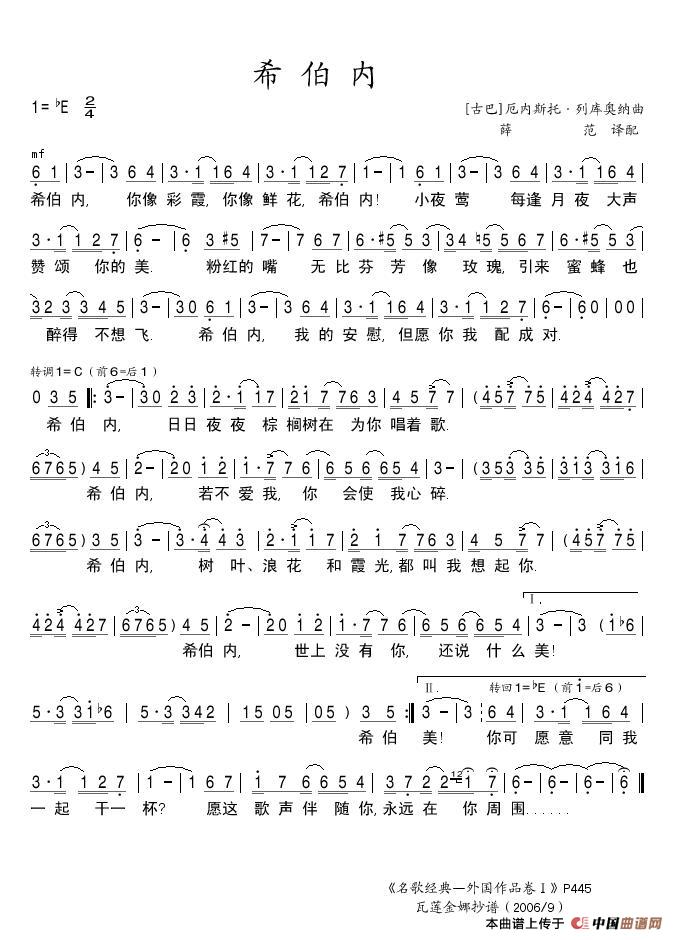 希 伯 内
1= ♭E 2/4
[古巴] 厄内斯托·列库奥纳曲
薛 范 译配
mf
6 1 | 3 – | 3 6 4 | 3·1 1 6 4 | 3·1 1 2 7 | 1 – | 1 6 1 | 3 – | 3 6 4 | 3·1 1 6 4 |
希伯 内, 你像 彩 霞, 你像 鲜 花, 希伯 内! 小夜 莺 每逢 月 夜 大声
3·1 1 2 7 | 6 – | 6 3 #5 | 7 – | 7 6 7 | 6·#5 5 3 | 3 4 ♮5 5 6 7 | 6·#5 5 3 |
赞 颂 你的 美. 粉红的 嘴 无 比 芬 芳 像 玫 瑰, 引来 蜜 蜂 也
3 2 3 3 4 5 | 3 – | 3 0 6 1 | 3 – | 3 6 4 | 3·1 1 6 4 | 3·1 1 2 7 | 6 – | 6 0 | 0 0 |
醉得 不想 飞. 希 伯 内, 我 的 安 慰, 但愿 你 我 配 成 对.
转调1=C（前6=后1）
0 3 5 ‖: 3 – | 3 0 2 3 | 2·1 1 7 | 2 1 7 7 6 3 | 4 5 7 7 | (4 5 7 7 5 | 4 2 4 4 2 7 |
希 伯 内, 日日 夜 夜 棕 榈树在 为你 唱着 歌.
6 7 6 5) 4 5 | 2 – | 2 0 1 2 | 1·7 7 6 | 6 5 6 6 5 4 | 3 – | (3 5 3 3 5 | 3 1 3 3 1 6 |
希 伯 内, 若不 爱 我, 你 会使 我心 碎.
6 7 6 5) 3 5 | 3 – | 3·4 4 3 | 2·1 1 7 | 2·1 1 7 6 3 | 4 5 7 7 | (4 5 7 7 5 |
希 伯 内, 树 叶、浪 花 和 霞 光, 都 叫 我 想 起 你.
4 2 4 4 2 7 | (6 7 6 5) 4 5 | 2 – | 2 0 1 2 | 1·7 7 6 | 6 5 6 6 5 4 | Ⅰ. 3 – | 3 (1 ♭6 |
希伯 内, 世上 没 有 你, 还说 什 么 美!
5·3 3 1 ♭6 | 5·3 3 4 2 | 1 5 0 5 | 0 5) 3 5 :‖ Ⅱ. 3 – | 3 转回1=♭E（前1=后6） 6 4 | 3·1 1 6 4 |
希 伯 美! 你可 愿 意 同 我
3·1 1 2 7 | 1 – | 1 6 7 | 6 6 5 4 | 3 7 2 2 12 1 7 | 6 – | 6 – | 6 – | 6 ‖
一 起 干一 杯? 愿这 歌 声 伴 随 你, 永远 在 你 周 围......
《名歌经典—外国作品卷Ⅰ》P445
瓦莲金娜抄谱（2006/9）
本曲谱上传于 中国曲谱网